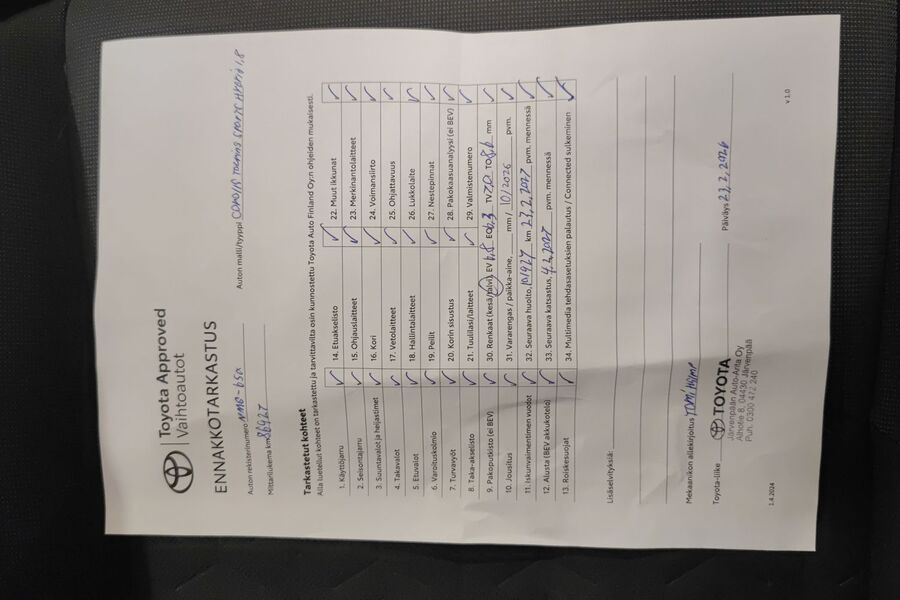 Toyota Approved
Vaihtoautot
ENNAKKOTARKASTUS
Auton rekisterinumero NMO-650 Auton malli/tyyppi COROLLA TOURING SPORTS HYBRID 1,8
Mittarilukema km 86927
Tarkastetut kohteet
Alla luetellut kohteet on tarkastettu ja tarvittavilta osin kunnostettu Toyota Auto Finland Oy:n ohjeiden mukaisesti.
1. Käyttöjarru
2. Seisontajarru
3. Suuntavalot ja heijastimet
4. Takavalot
5. Etuvalot
6. Varoituskolmio
7. Turvavyöt
8. Taka-akselisto
9. Pakoputkisto (ei BEV)
10. Jousitus
11. Iskunvaimentimien vuodot
12. Alusta (BEV akkukotelo)
13. Roiskesuojat
14. Etuakselisto
15. Ohjauslaitteet
16. Kori
17. Vetolaitteet
18. Hallintalaitteet
19. Peilit
20. Korin sisustus
21. Tuulilasi/laitteet
22. Muut ikkunat
23. Merkinantolaitteet
24. Voimansiirto
25. Ohjattavuus
26. Lukkolaite
27. Nestepinnat
28. Pakokaasuanalyysi (ei BEV)
29. Valmistenumero
30. Renkaat (kesä/talvi), EV EO TV TO mm
31. Vararengas / paikka-aine, mm / 10/2026 pvm.
32. Seuraava huolto, 101927 km 23.2.2027 pvm. mennessä
33. Seuraava katsastus, 4.2.2027 pvm. mennessä
34. Multimedia tehdasasetuksien palautus / Connected sulkeminen
Lisäselvityksiä:
Mekaanikon allekirjoitus
Toyota-liike TOYOTA Päiväys 23.2.2026
Järvenpään Auto-Arita Oy
Alhotie 8, 04430 Järvenpää
Puh. 0300 472 240
1.4.2024 v 1.0